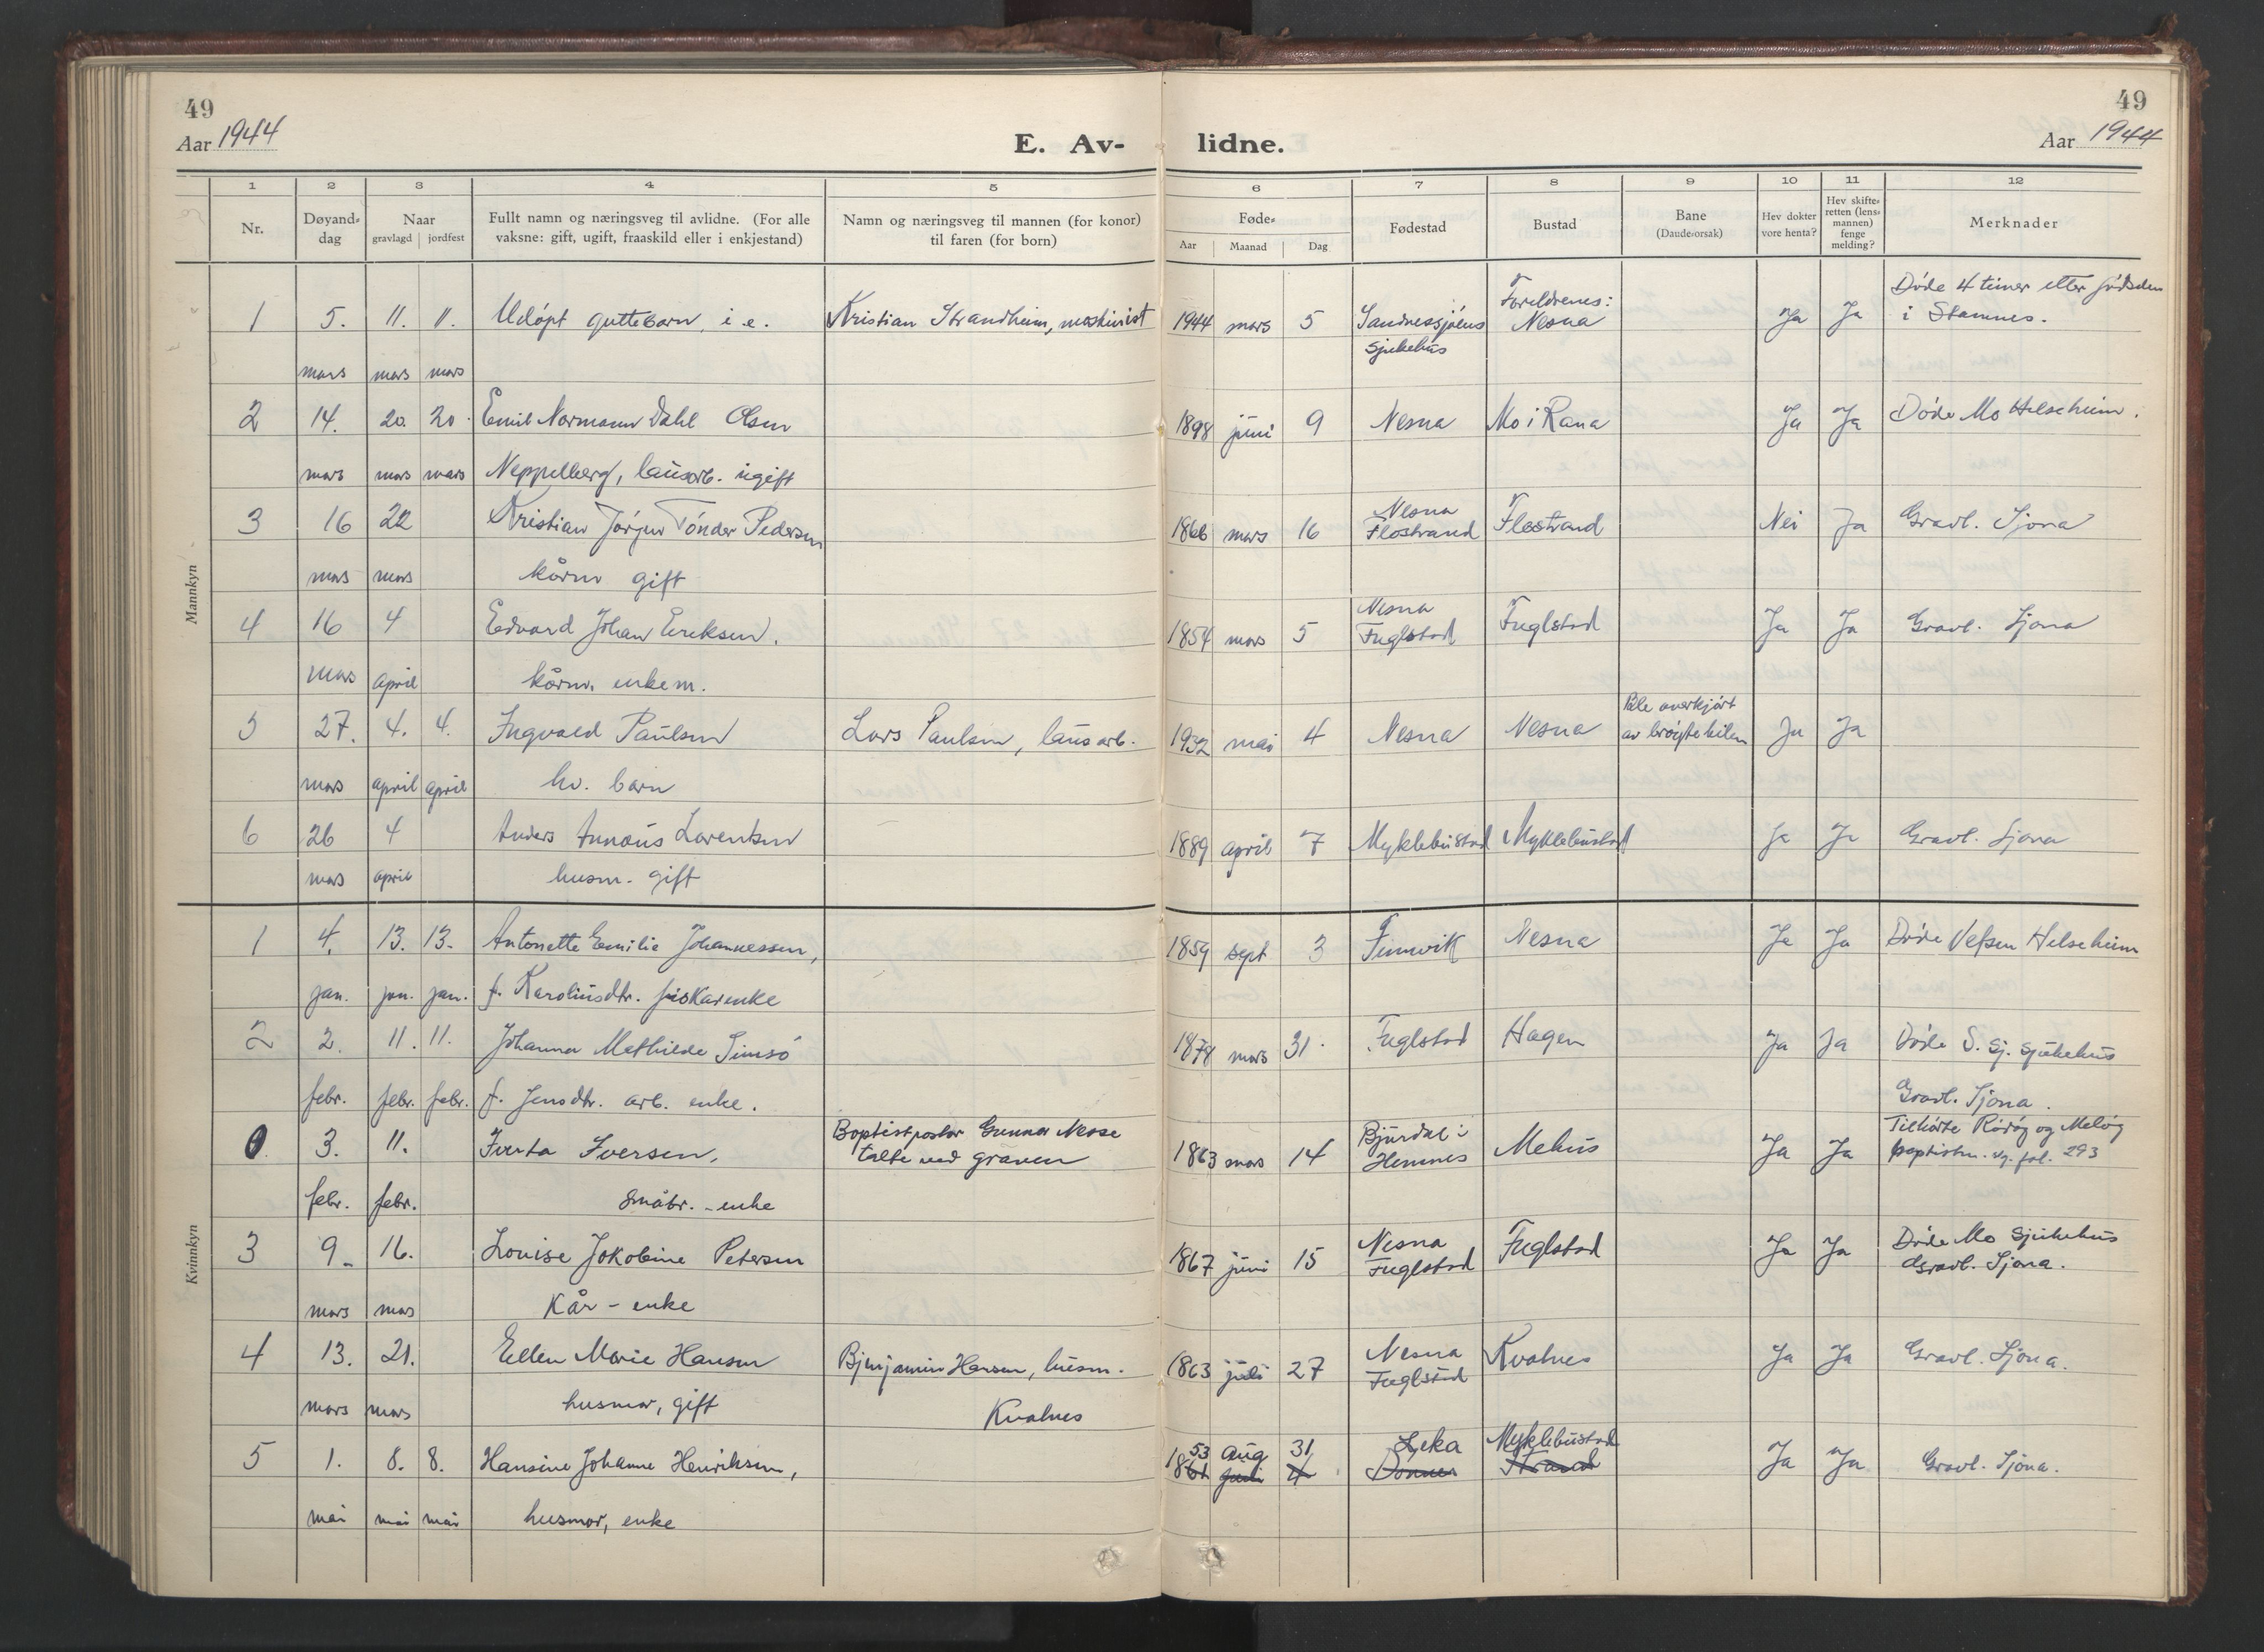 49
Aar 1944
E. Av-
lidne.
49
Aar 1944
1 2 3 4 5 6 7 8 9 10 11 12
Nr.
Døyand-
dag
Naar
gravlagd jordfest
Fullt namn og næringsveg til avlidne. (For alle
vaksne: gift, ugift, fraaskild eller i enkjestand)
Namn og næringsveg til mannen (for konor)
til faren (for born)
Føde-
Aar Maanad Dag
Fødestad
Bustad
Bane
(Daude-orsak)
Hev dokter
vore henta?
Hev skifte-
retten (lens-
mannen)
fenge
melding?
Merknader
Mannkyn
1 5. 11. 11. Udöpt guttebarn, i e. Kristian Strandheim, maskinist 1944 mars 5 Sandnessjøens Foreldrenes: Ja Ja Døde 4 timer etter fødselen
mars mars mars sjukehus Nesna i Stamnes.
2 14. 20. 20. Emil Normann Dahl Olsen 1898 juni 9 Nesna Mo i Rana Ja Ja Døde Mo Helseheim.
mars mars mars Neppelberg, lausarb. ugift
3 16 22 Kristian Jörgen Tönder Pedersen 1866 mars 16 Nesna Flostrand Flostrand Nei Ja Gravl. Sjona
mars mars kårm gift
4 16 4 Edvard Johan Eriksen. 1854 mars 5 Nesna Fuglstad Fuglstad Ja Ja Gravl. Sjona
mars april kårm. enkem.
5 27. 4. 4. Ingvald Paulsen Lars Paulsen, laus arb. 1932 mai 4 Nesna Nesna Ble overkjört Ja Ja
av bröytebilen
mars april april hv. barn
6 26 4 Anders Annæus Lorentsen 1889 april 7 Myklebustad Myklebustad Ja Ja Gravl. Sjona
mars april husm. gift
Kvinnkyn
1 4. 13. 13. Antonette Emilie Johannessen, 1859 sept 3 Finnvik Nesna Ja Ja Døde Vefsen Helseheim
jan. jan. jan. f. Karoliusdtr. fiskarenke
2 2. 11. 11. Johanna Mathilde Simsö 1878 mars 31. Fuglstad Hagen Ja Ja Döde S. sj. sjukehus
febr. febr. febr. f. Jensdtr. arb. enke. Gravl. Sjona.
0. 3. 11. Iverta Iversen, Baptistpastor Gunnar Nesse 1863 mars 14 Bjurdal i Mehus Ja Ja Tilhörte Rödøy og Meløy
talte ved graven Hemnes baptistm. vg. fol. 293
febr. febr. småbr. - enke
3 9. 16. Lovise Jakobine Petersen 1867 juni 15 Nesna Fuglstad Fuglstad Ja Ja Døde Mo sjukehus
Gravl. Sjona.
mars mars Kår - enke
4 13. 21. Ellen Marie Hansen Benjamin Hansen, husm. 1863 juli 27 Nesna Fuglstad Kvalnes Ja Ja Gravl. Sjona.
mars mars husmor, gift Kvalnes
5 1. 8. 8. Hansine Johanne Henriksen, 1853 aug 31 Leka Myklebustad Ja Ja Gravl. Sjona.
61 juni 4 Dønnes Strand
mai mai mai husmor, enke